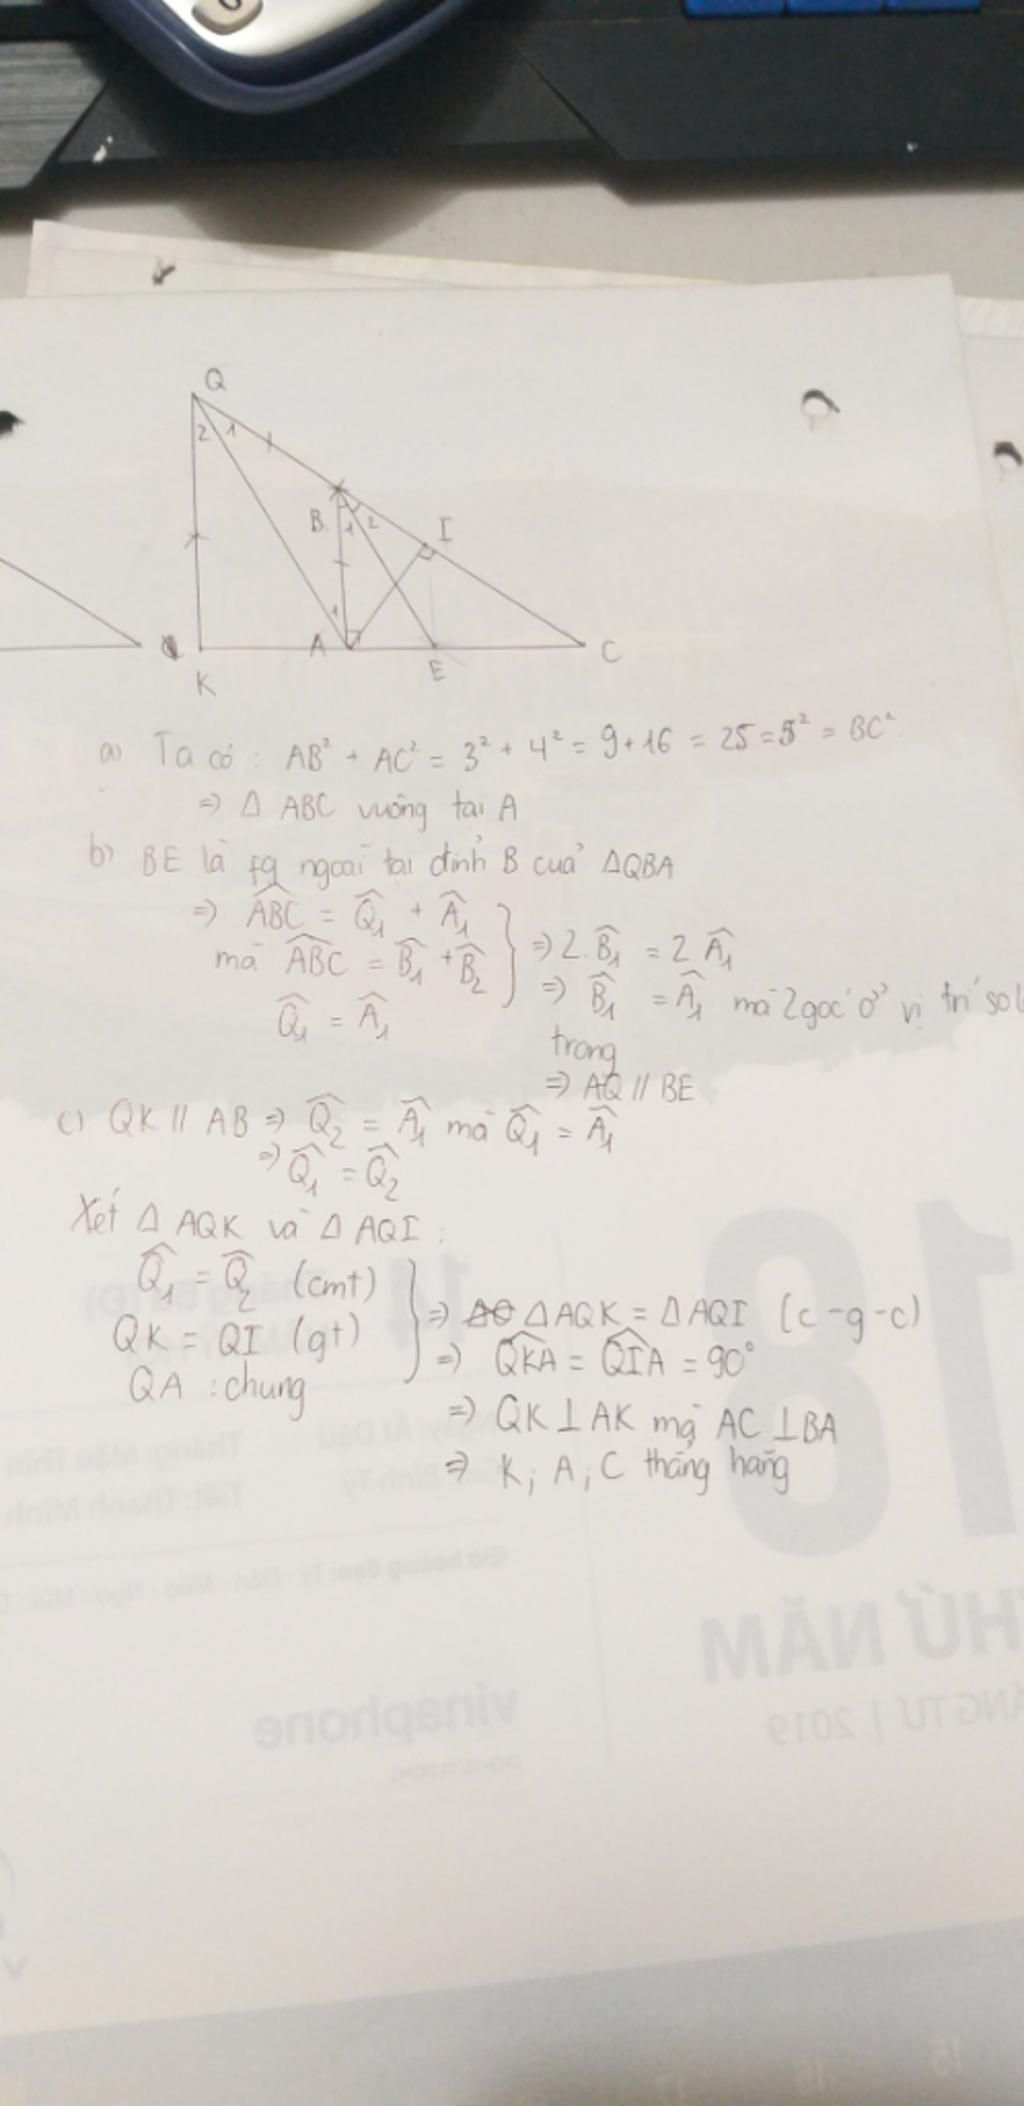 Q
2 1
B 1 2 I
1
A E C
K
a) Ta có : AB² + AC² = 3² + 4² = 9 + 16 = 25 = 5² = BC²
=> Δ ABC vuông tại A
b) BE là fg ngoài tại đỉnh B của ΔQBA
=> ABC = Q₁ + A₁
mà ABC = B₁ + B₂
Q₁ = A₁
=> 2. B₁ = 2. A₁
=> B₁ = A₁ mà 2 góc ở vị trí sol
trong
=> AQ // BE
c) QK // AB => Q₂ = A₁ mà Q₁ = A₁
=> Q₁ = Q₂
Xét Δ AQK và Δ AQI :
Q₁ = Q₂ (cmt)
QK = QI (gt)
QA : chung
=> Δ AQK = Δ AQI (c - g - c)
=> QKA = QIA = 90°
=> QK ⊥ AK mà AC ⊥ BA
=> K ; A ; C thẳng hàng
18
THỨ NĂM
THÁNG TƯ | 2019
vinaphone